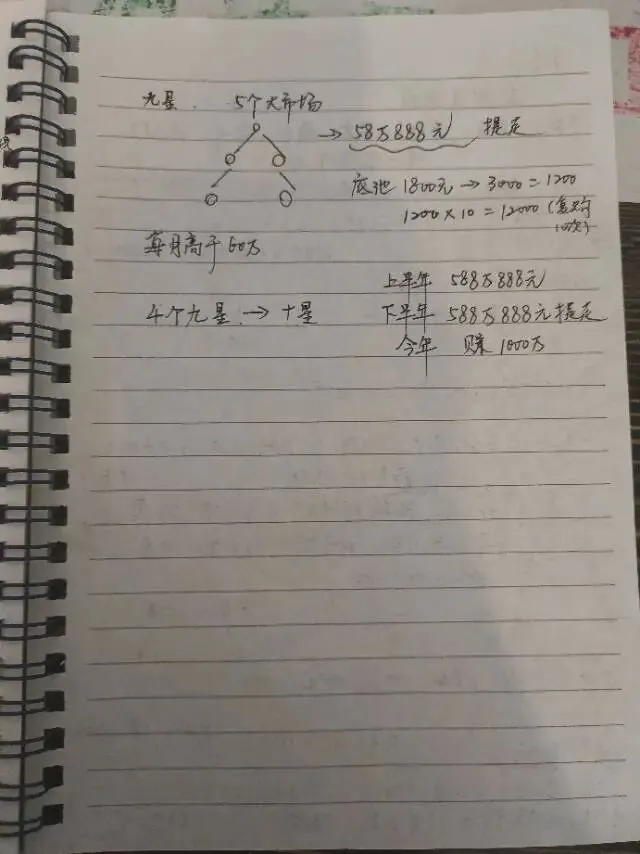 九星 5个大市场
→ 58万888元 提走
底池 1800元 → 3000 = 1200
1200 × 10 = 12000 (复购
10次)
每月高于60万
上半年 588万888元
4个九星 → 十星 下半年 588万888元提走
今年 赚 1000万